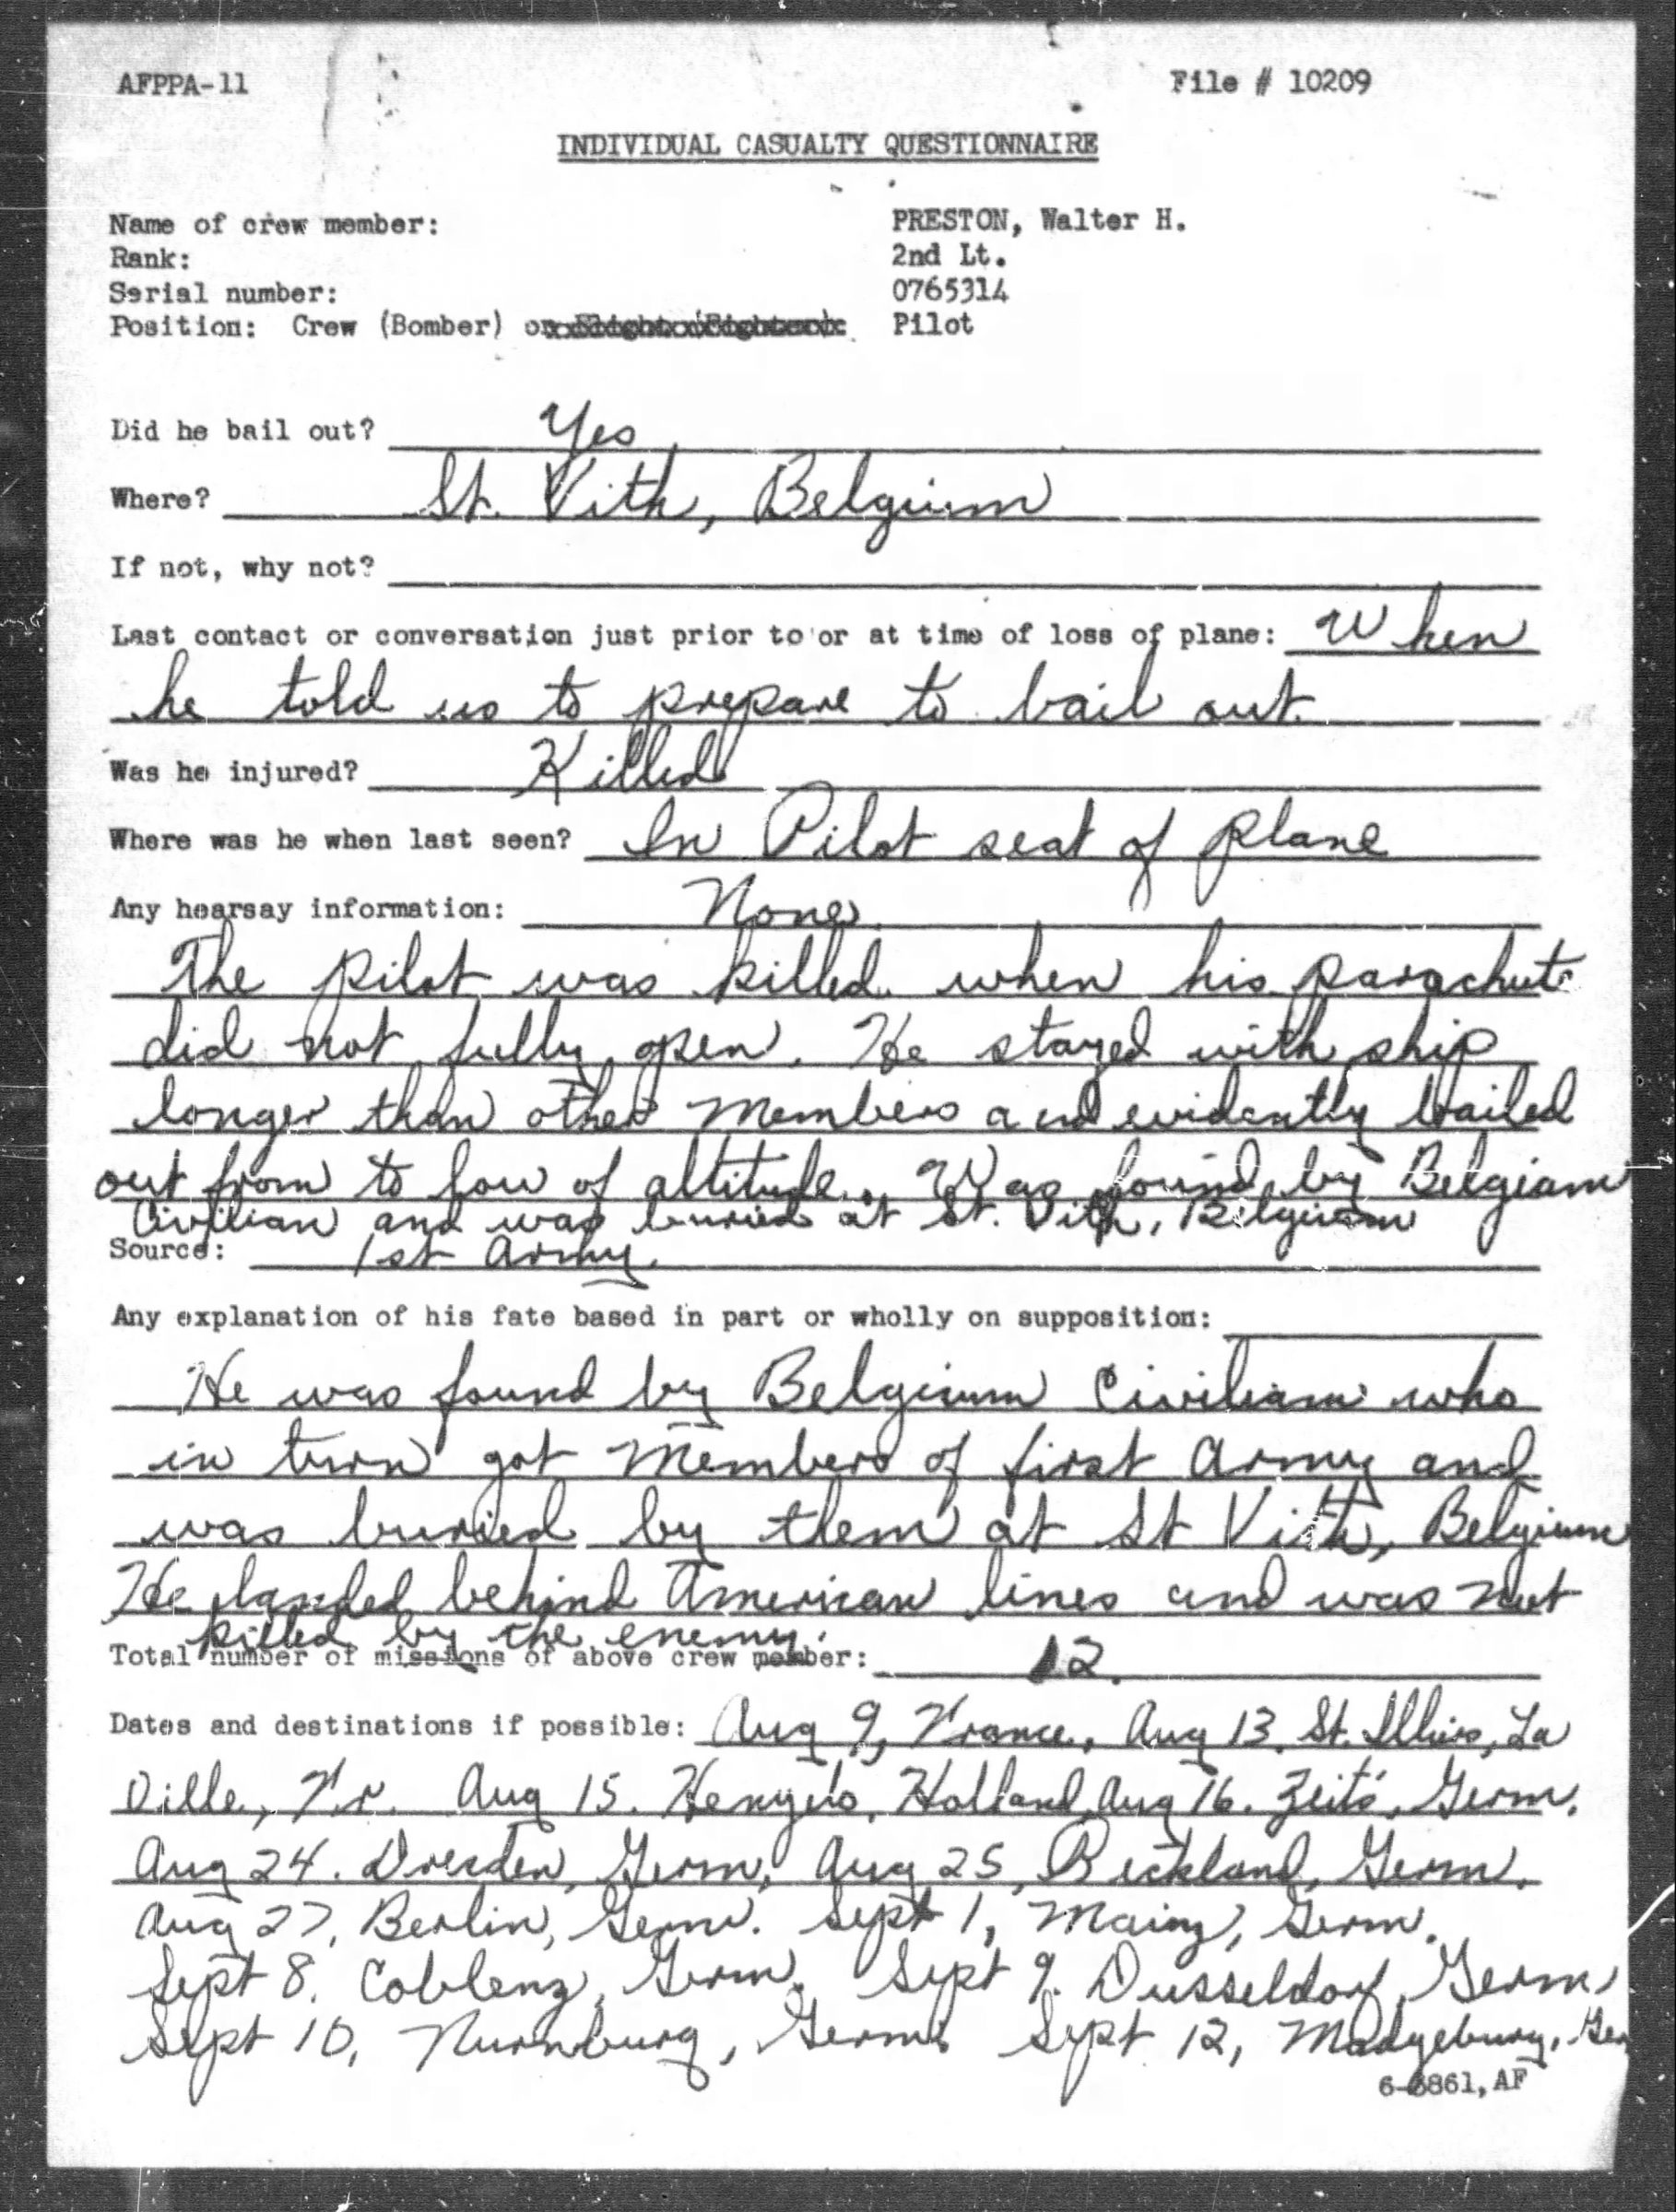 AFPPA-11 File # 10209
INDIVIDUAL CASUALTY QUESTIONNAIRE
Name of crew member: PRESTON, Walter H.
Rank: 2nd Lt.
Serial number: 0765314
Position: Crew (Bomber) or Pilot
Did he bail out? Yes
Where? St. Vith, Belgium
If not, why not?
Last contact or conversation just prior to or at time of loss of plane: When
he told us to prepare to bail out.
Was he injured? Killed
Where was he when last seen? In Pilot seat of plane
Any hearsay information: None
The pilot was killed when his parachute
did not fully open. He stayed with ship
longer than other members and evidently bailed
out from to low of altitude. Was found by Belgiam
Civilian and was buried at St. Vith, Belgium
Source: 1st Army.
Any explanation of his fate based in part or wholly on supposition:
He was found by Belgium Civilian who
in turn got members of first Army and
was buried by them at St Vith, Belgium
He landed behind American lines and was not
killed by the enemy.
Total number of missions of above crew member: 12.
Dates and destinations if possible: Aug 9, France, Aug 13. St. La
Ville, Fr. Aug 15. Holland, Aug 16. Zeits, Germ.
Aug 24. Dresden, Germ, Aug 25, Germ.
Aug 27, Berlin, Germ. Sept 1, Mainz, Germ.
Sept 8. Coblenz, Germ. Sept 9. Dusseldorf, Germ
Sept 10, Nurnburg, Germ. Sept 12, Madgeburg, Ger
6-6861, AF